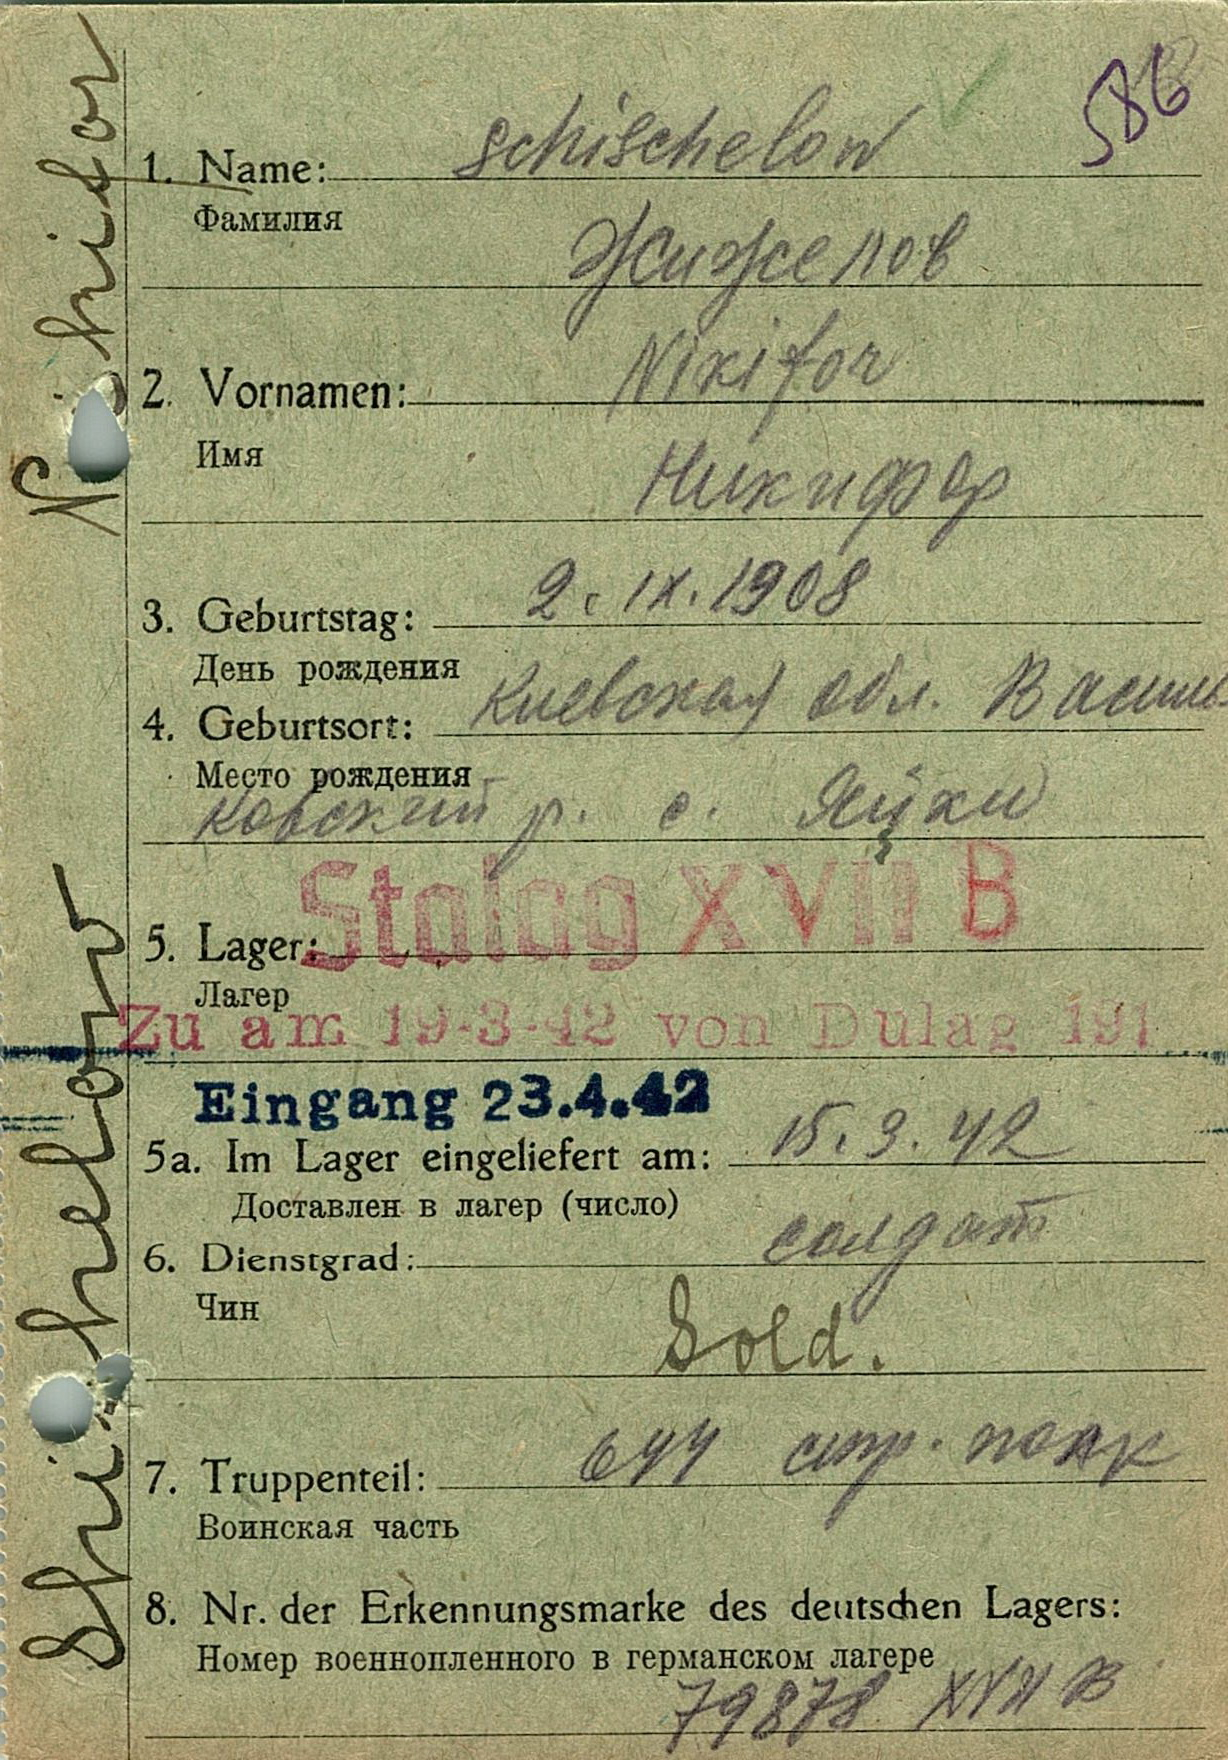 586
1. Name: Schischelow
Фамилия
Жижелов
2. Vornamen: Nikifor
Имя
Никифор
3. Geburtstag: 2. IX. 1908
День рождения
4. Geburtsort: Киевская обл. Василь-
Место рождения
ковский р. с. Яцки
Stalag XVII B
5. Lager:
Лагер
Zu am 19-3-42 von Dulag 191
Eingang 23.4.42
5a. Im Lager eingeliefert am: 15. 3. 42
Доставлен в лагер (число)
6. Dienstgrad: солдат
Чин
Sold.
7. Truppenteil: 644 стр. полк
Воинская часть
8. Nr. der Erkennungsmarke des deutschen Lagers:
Номер военнопленного в германском лагере
79878 XVII B